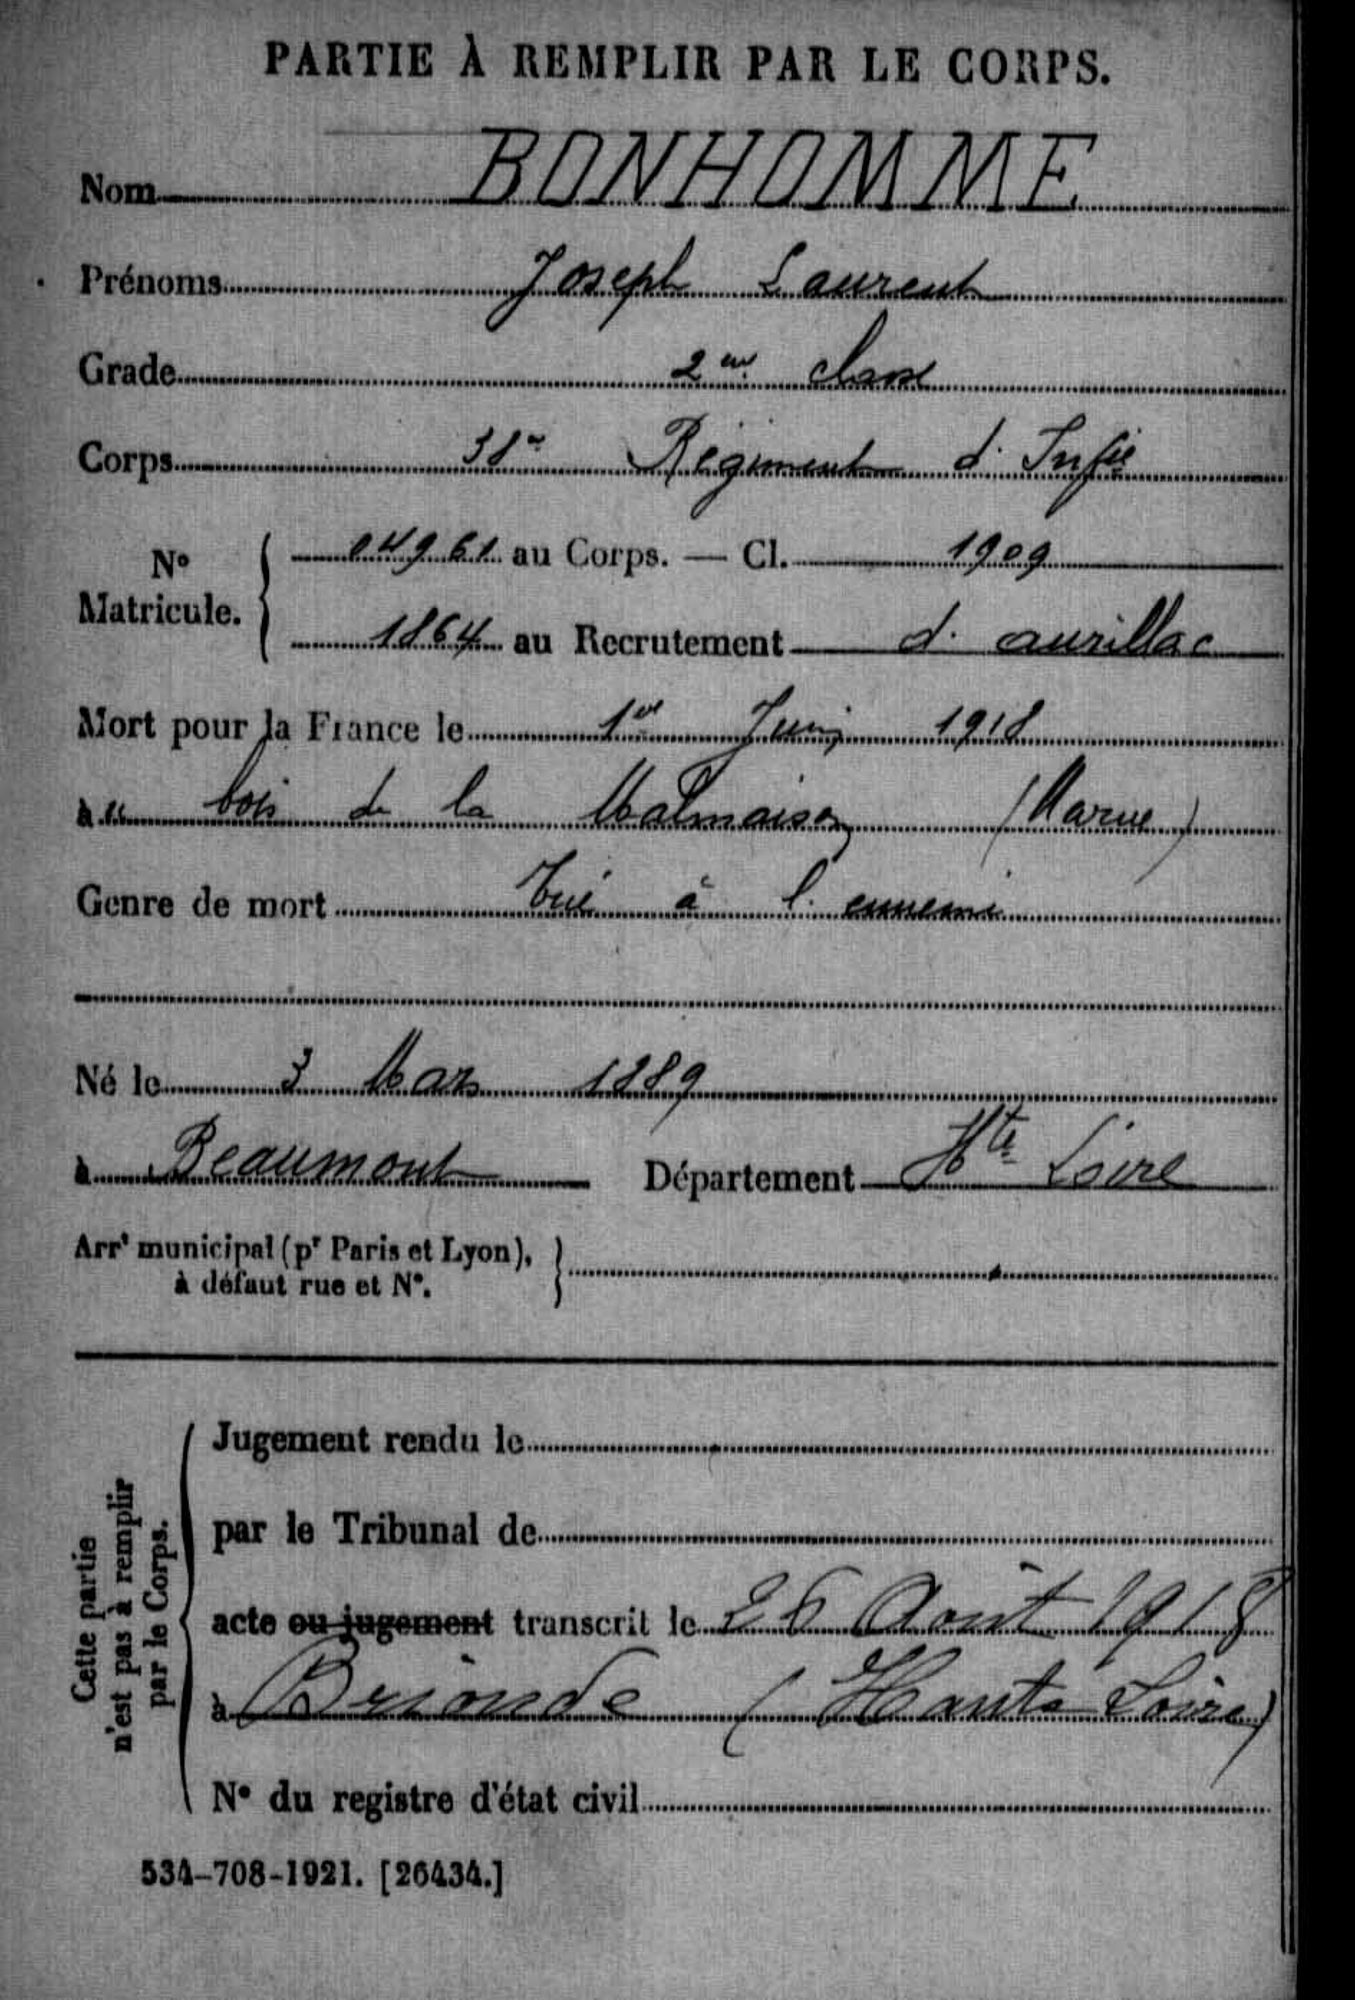 PARTIE À REMPLIR PAR LE CORPS.
Nom BONHOMME
Prénoms Joseph Laurent
Grade 2me classe
Corps 38e Régiment d'Infie
No Matricule. { 04961 au Corps. — Cl. 1909
1864 au Recrutement d'aurillac
Mort pour la France le 1er Juin 1918
à u bois de la Malmaison (Marne)
Genre de mort Tué à l'ennemi
Né le 3 Mars 1889
à Beaumont Département Hte Loire
Arrt municipal (pr Paris et Lyon), }
à défaut rue et N°.
Cette partie
n'est pas à remplir
par le Corps.
Jugement rendu le
par le Tribunal de
acte ou jugement transcrit le 26 Août 1918
à Brioude (Haute Loire)
N° du registre d'état civil
534-708-1921. [26434.]